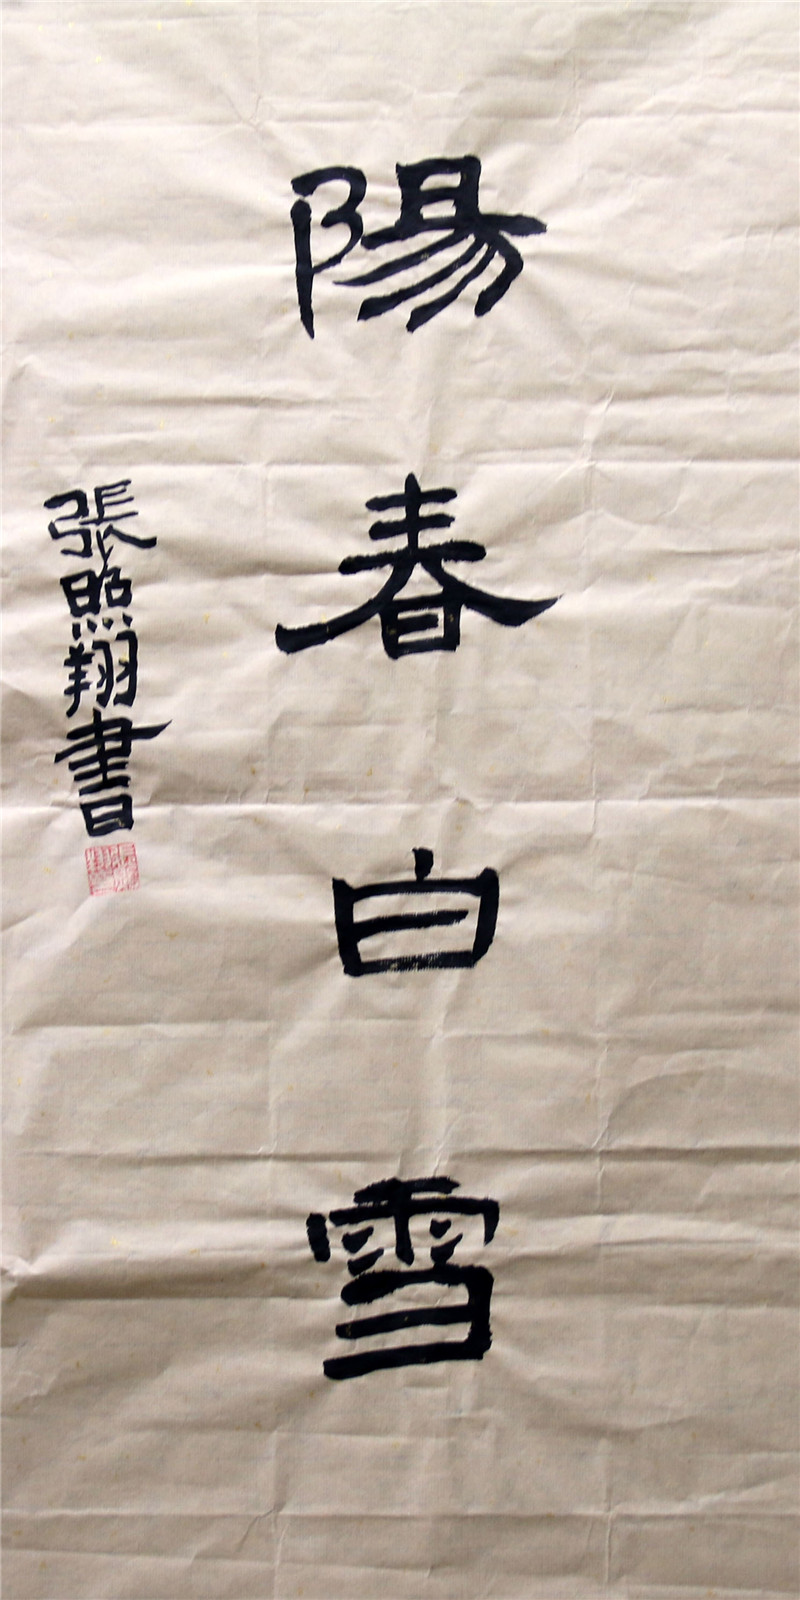 陽春白雪
張照翔書